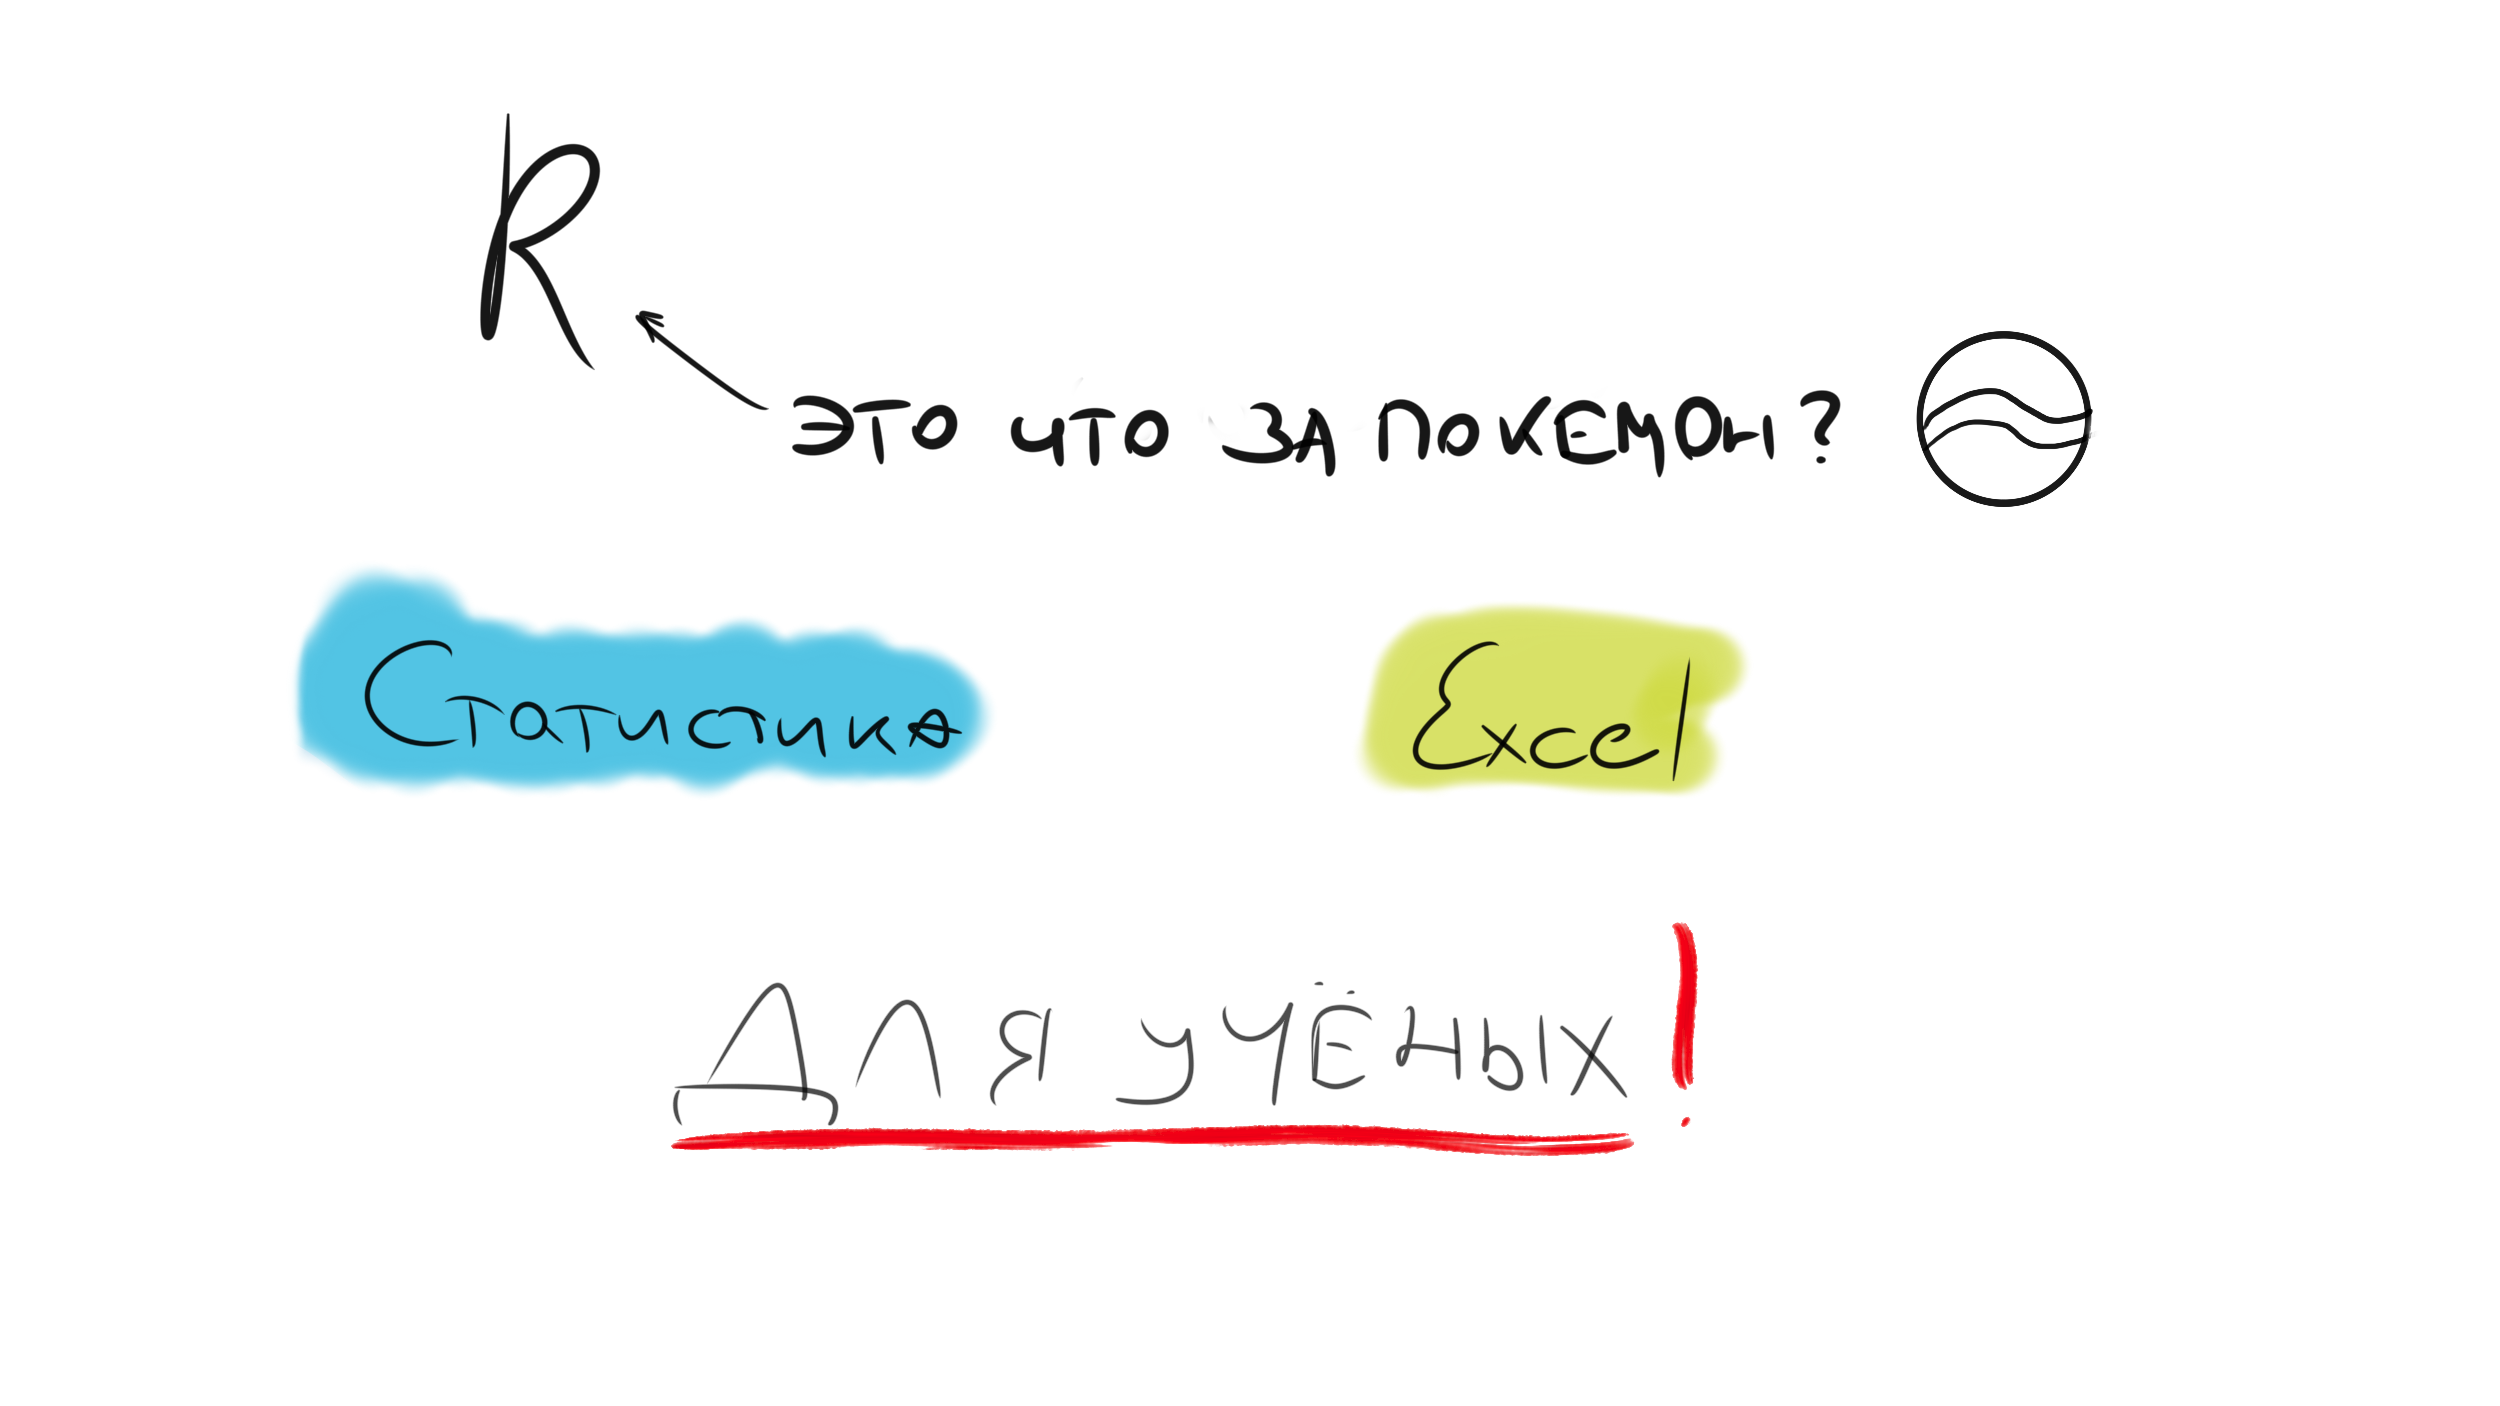 R
ЭТО ЧТО ЗА ПОКЕМОН?
Статистика
Excel
ДЛЯ УЧЁНЫХ!